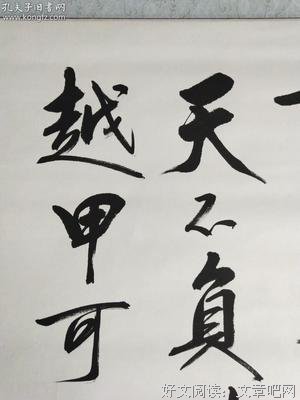 孔夫子旧书网
www.kongfz.com
天不負
越甲可
好文阅读：文章吧网